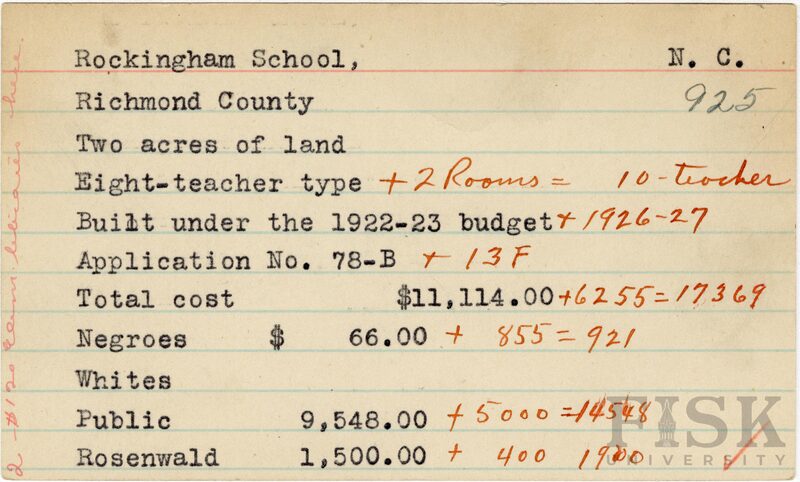 Rockingham School, N. C.
Richmond County 925
Two acres of land
Eight-teacher type + 2 Rooms = 10-teacher
Built under the 1922-23 budget + 1926-27
Application No. 78-B + 13F
Total cost $11,114.00 + 6255 = 17369
Negroes $ 66.00 + 855 = 921
Whites
Public 9,548.00 + 5000 = 14548
Rosenwald 1,500.00 + 400 1900
2 - $120 Elem libraries here
FISK
UNIVERSITY